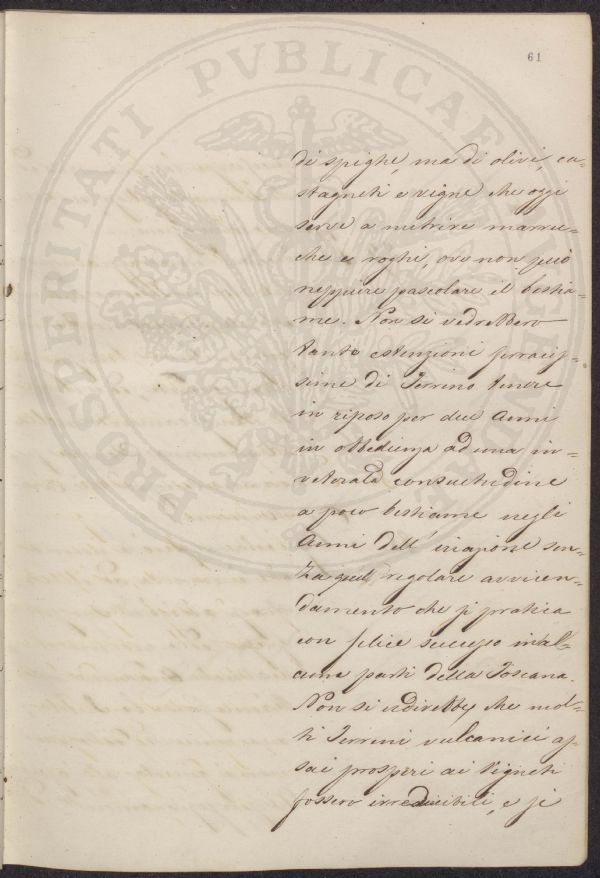 61
PROSPERITATI PVBLICAE AVGENDAE
di spighe, ma di olivi, ca-
stagneti e vigne che oggi
serve a nutrire marru-
che e roghi, ove non può
neppure pascolare il bestia-
me. Non si vedrebbero
tante estenzioni feracis-
sime di Terreno tenere
in riposo per due Anni
in obbedienza ad una in-
veterata consuetudine
a poco bestiame negli
Anni dell' inazione sen-
za quel regolare avvicen-
damento che si pratica
con felice successo in al-
cune parti della Toscana.
Non si udirebbe che mol-
ti Terreni vulcanici as-
sai prosperi ai Vigneti
fossero irreducibili, e si